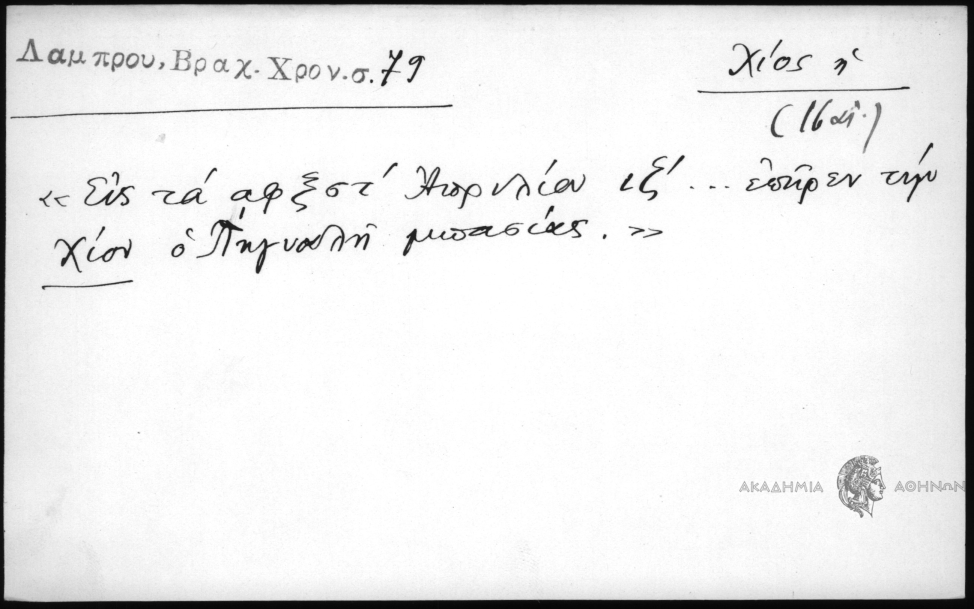 Λαμπρου, Βραχ. Χρον. σ. 79
Χίος ἡ
(16 αἰ.)
«Εἰς τά αφξστ´ Ἀπριλίου ιξ´ ... ἐπῆρεν τήν
Χίον ὁ Πηγυαλῆ μπασίας.»
ΑΚΑΔΗΜΙΑ ΑΘΗΝΩΝ